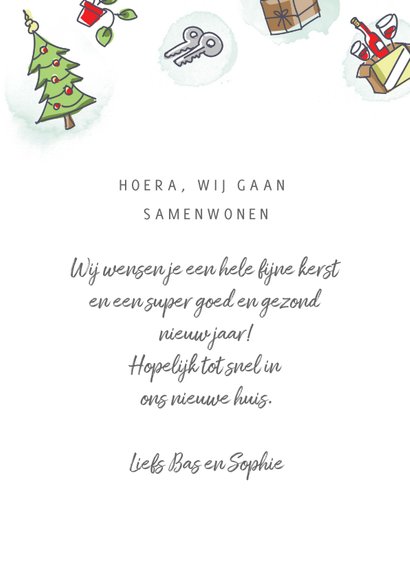 HOERA, WIJ GAAN
SAMENWONEN
Wij wensen je een hele fijne kerst
en een super goed en gezond
nieuw jaar!
Hopelijk tot snel in
ons nieuwe huis.
Liefs Bas en Sophie